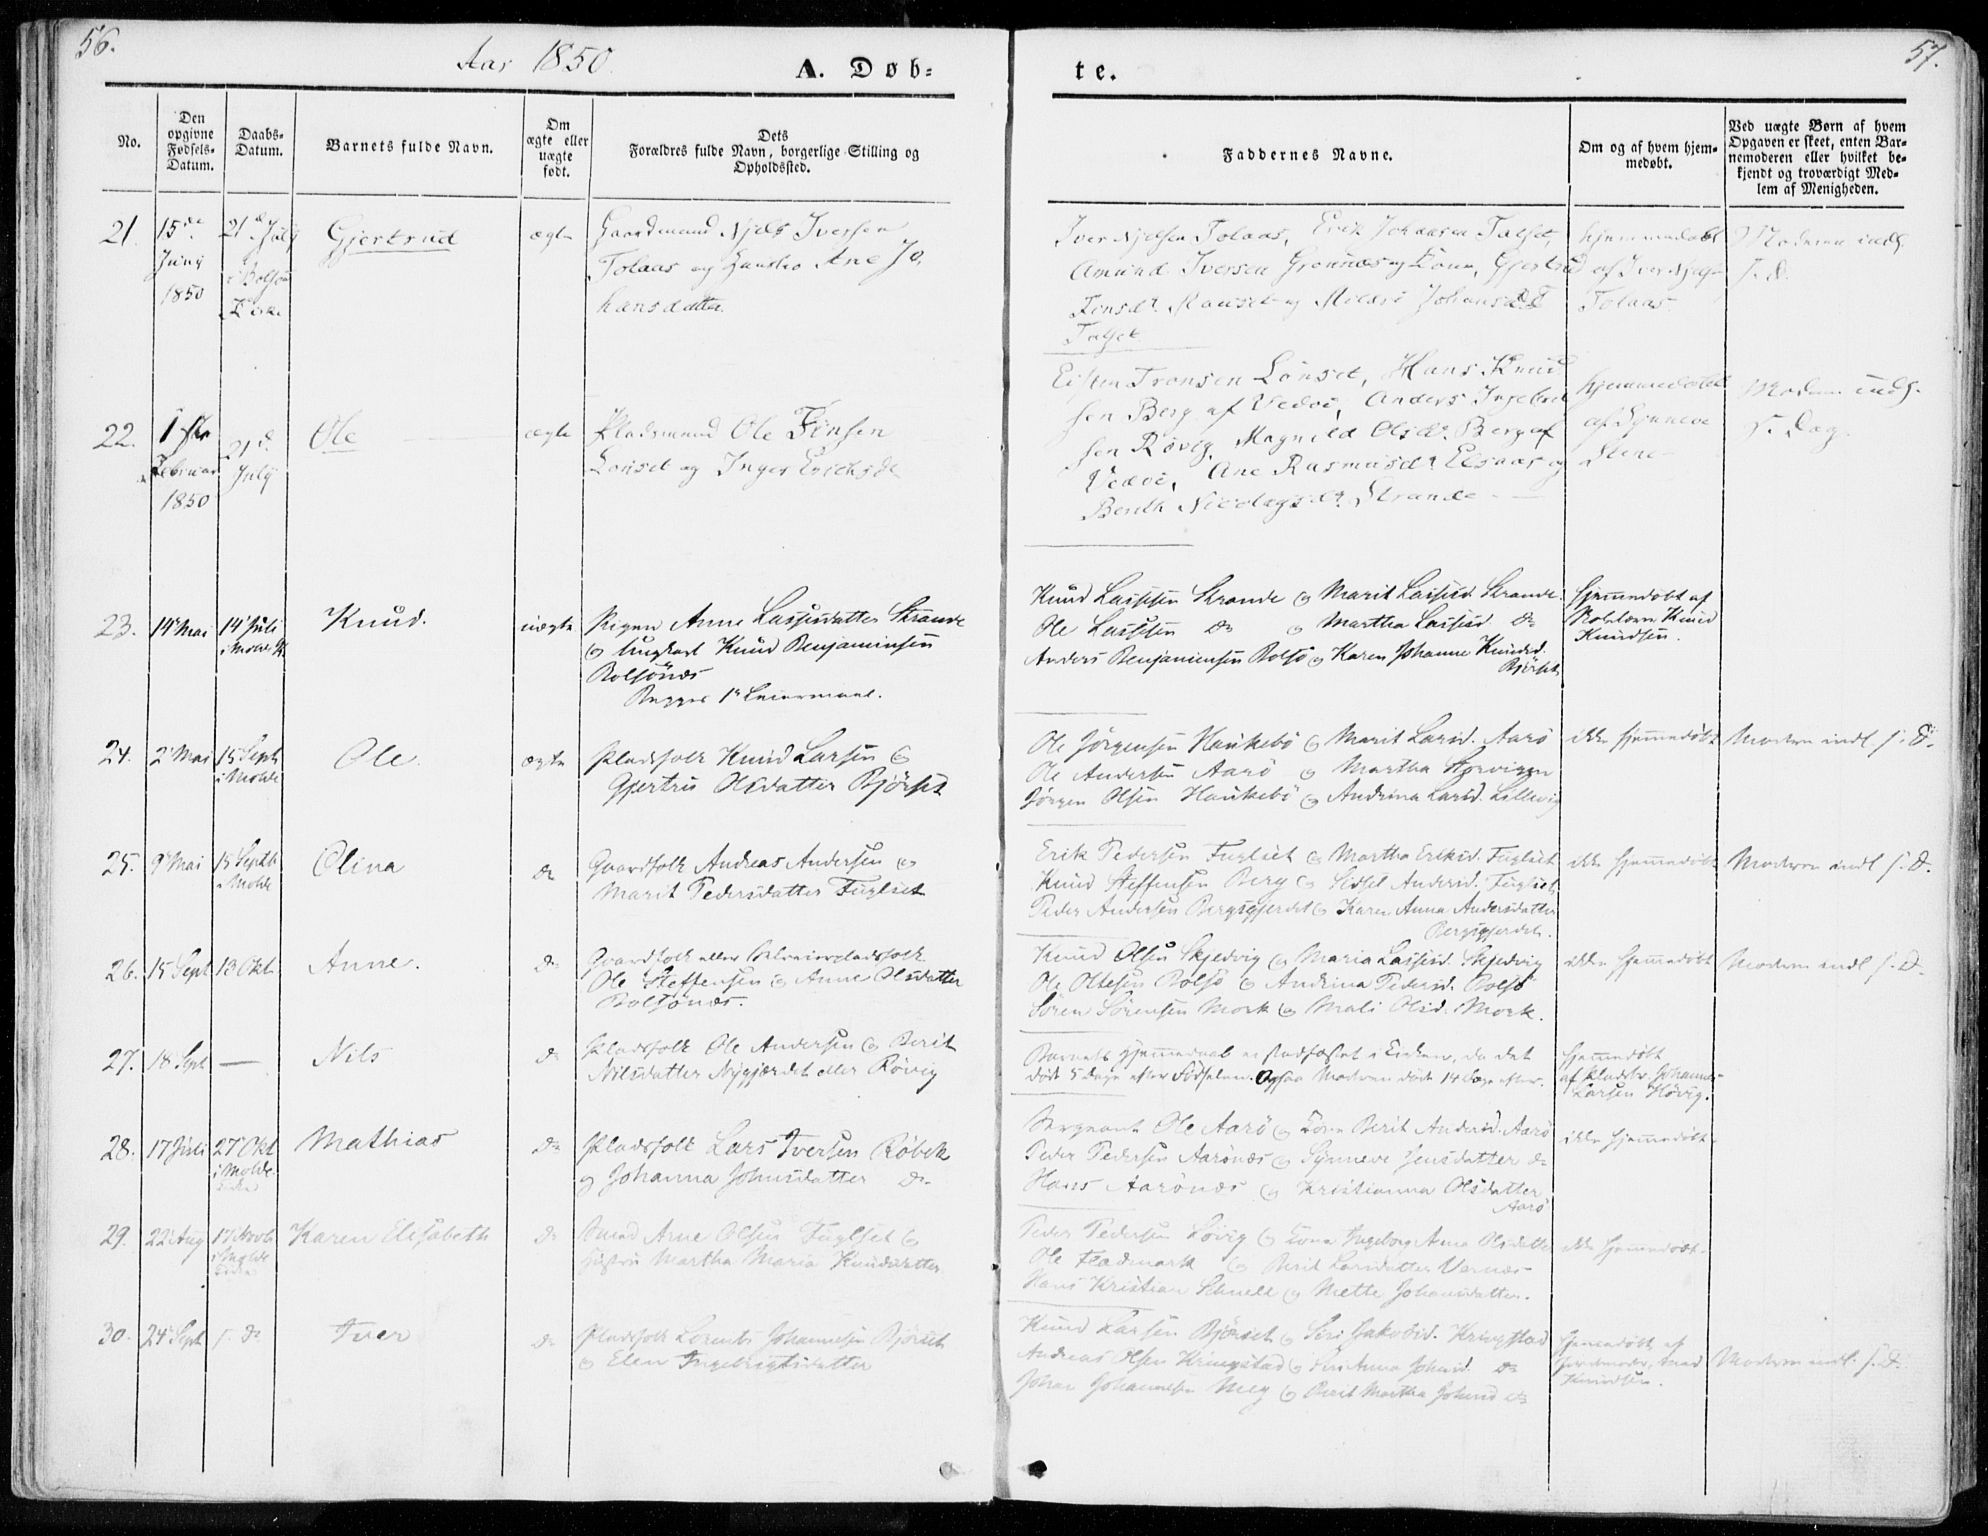 56.
57.
Aar 1850.
A. Døb-
te.
No.
Den opgivne Fødsels-Datum.
Daabs-Datum.
Barnets fulde Navn.
Om ægte eller uægte født.
Dets Forældres fulde Navn, borgerlige Stilling og Opholdssted.
Faddernes Navne.
Om og af hvem hjem-medøbt.
Ved uægte Børn af hvem Opgaven er skeet, enten Bar-nemoderen eller hvilket be-kjendt og troværdigt Med-lem af Menigheden.
21.
15de Juny 1850
21d July i Bolsøe Kirke
Gjertrud
ægte
Gaardmand Njels Iversen
Tolaas og Hustro Ane Jo,
hansdatter.
Iver Njelsen Tolaas, Erik Johansen Talset,
Amund Iversen Grønnæs og Kone, Gjertrud
Finsdr. og Johansdr.
Talset
hjemmedøbt
af Iver Njelsen
Tolaas.
Moderen indl.
s. d.
22.
1ste Februar 1850
21d. July
Ole
ægte
Pladsmand Ole Finsen
Lønset og Inger Ericksdr
Eisten Tronsen Lønset, Hans Knud
sen Berg af Vedøe, Anders Ingebret
sen Røvig, Magnild Olsdr. Berg af
Vedøe, Ane Rasmusdr. Elsaas og
Berith Nicolaysdr. Strande
hjemmedøbt
af Synneve
Stene
Moderen indl.
s. Dag.
23.
14 Mai
14 Juli i Molde K.
Knud.
uægte
Pigen Anne Lassesdatter Strande
og Ungkarl Knud Benjaminsen
Bolsönæs
Begges 1ste Leiermaal.
Knud Lassesen Strande og Marit Lassesd. Strande.
Ole Lassesen do og Martha Lassesd. do
Anders Benjaminsen Bolsö og Karen Johanne Knudsd.
Björset
Hjemmedøbt af
Knud
Knudsen.
24.
2 Mai
15 Sept i Molde
Ole.
ægte
Pladsfolk Knud Larsen og
Gjertru Olsdatter Björset
Ole Jörgensen Haukebö og Marit Larsd. Aarö
Ole Andersen Aarö og Martha
Jörgen Olsen Haukebö og Andrina Larsd. Lillevig
ikke hjemmedøbt
Moderen indl s. D.
25.
9 Mai
15 Septb i Molde
Olina
do
Gaardfolk Andreas Andersen og
Marit Pedersdatter Fuglset
Erik Pedersen Fuglset og Martha Eriksd. Fuglset
Knud Steffensen Berg og Sidsel Andersd. Fuglset.
Peder Andersen Bergsgjerdet og Karen Anna Andersdatter
Bergsgjerdet.
ikke hjemmedøbt
Moderen indl s. D.
26.
15 Sept
13 Okt
Anne.
do
Gaardfolk eller
Ole Steffensen og Anne Olsdatter
Bolsönæs.
Knud Olsen Skjedvig og Maria Lassesd. Skjedvig
Ole Oltesen Bolsö og Andrina Pedersd. Bolsö
Sören Sörensen Mork og Mali Olsd. Mork.
ikke hjemmedøbt
Moderen indl s. D.
27.
18 Sept
—
Nils
do
Pladsfolk Ole Andersen og Berit
Nilsdatter Nygjærdet eller Rövig
Barnets Hjemmedaab ei stadfæstet i Kirken, da det
døde 5 Dage efter Födselen. Ogsaa Moderen døde 14 Dage efter.
Hjemmedøbt
af Johannes
Larsen Hövig.
28.
17 Juli
27 Okt i Molde Kirke
Mathias
do
Pladsfolk Lars Iversen Röbek
og Johanna Johnsdatter do.
Sergeant Ole Aarö og Kone Berit Andersd. Aarö
Peder Pedersen Aarönæs og Synneve Jensdatter do
Hans Aarönæs og Kristianna Olsdatter
Aarö
ikke hjemmedøbt.
29.
22 Aug
17 Novb i Molde Kirke
Karen Elisabeth
do
Smed Arne Olsen Fuglset og
Hustru Martha Maria Knudsdatter
Peder Pedersen Lövig og Kone Ingeborg Anna Olsdatter
Ole Flademark og Berit Larsdatter Varnæs
Hans Kristian Schnell og Mette Johansdatter.
ikke hjemmedøbt.
30.
24 Sept
s. D
Iver
do
Pladsfolk Lorents Johannesen Björset
og Elen Ingebrigtsdatter
Knud Larsen Björset og Seri Jakobsd. Kringstad
Andreas Olsen Kringstad og Anna Johnsd. do
Johan Johannesen Meg og Berit Martha Johnsd do
Hjemmedøbt af
Knudsen.
Moderen indl. s. D.